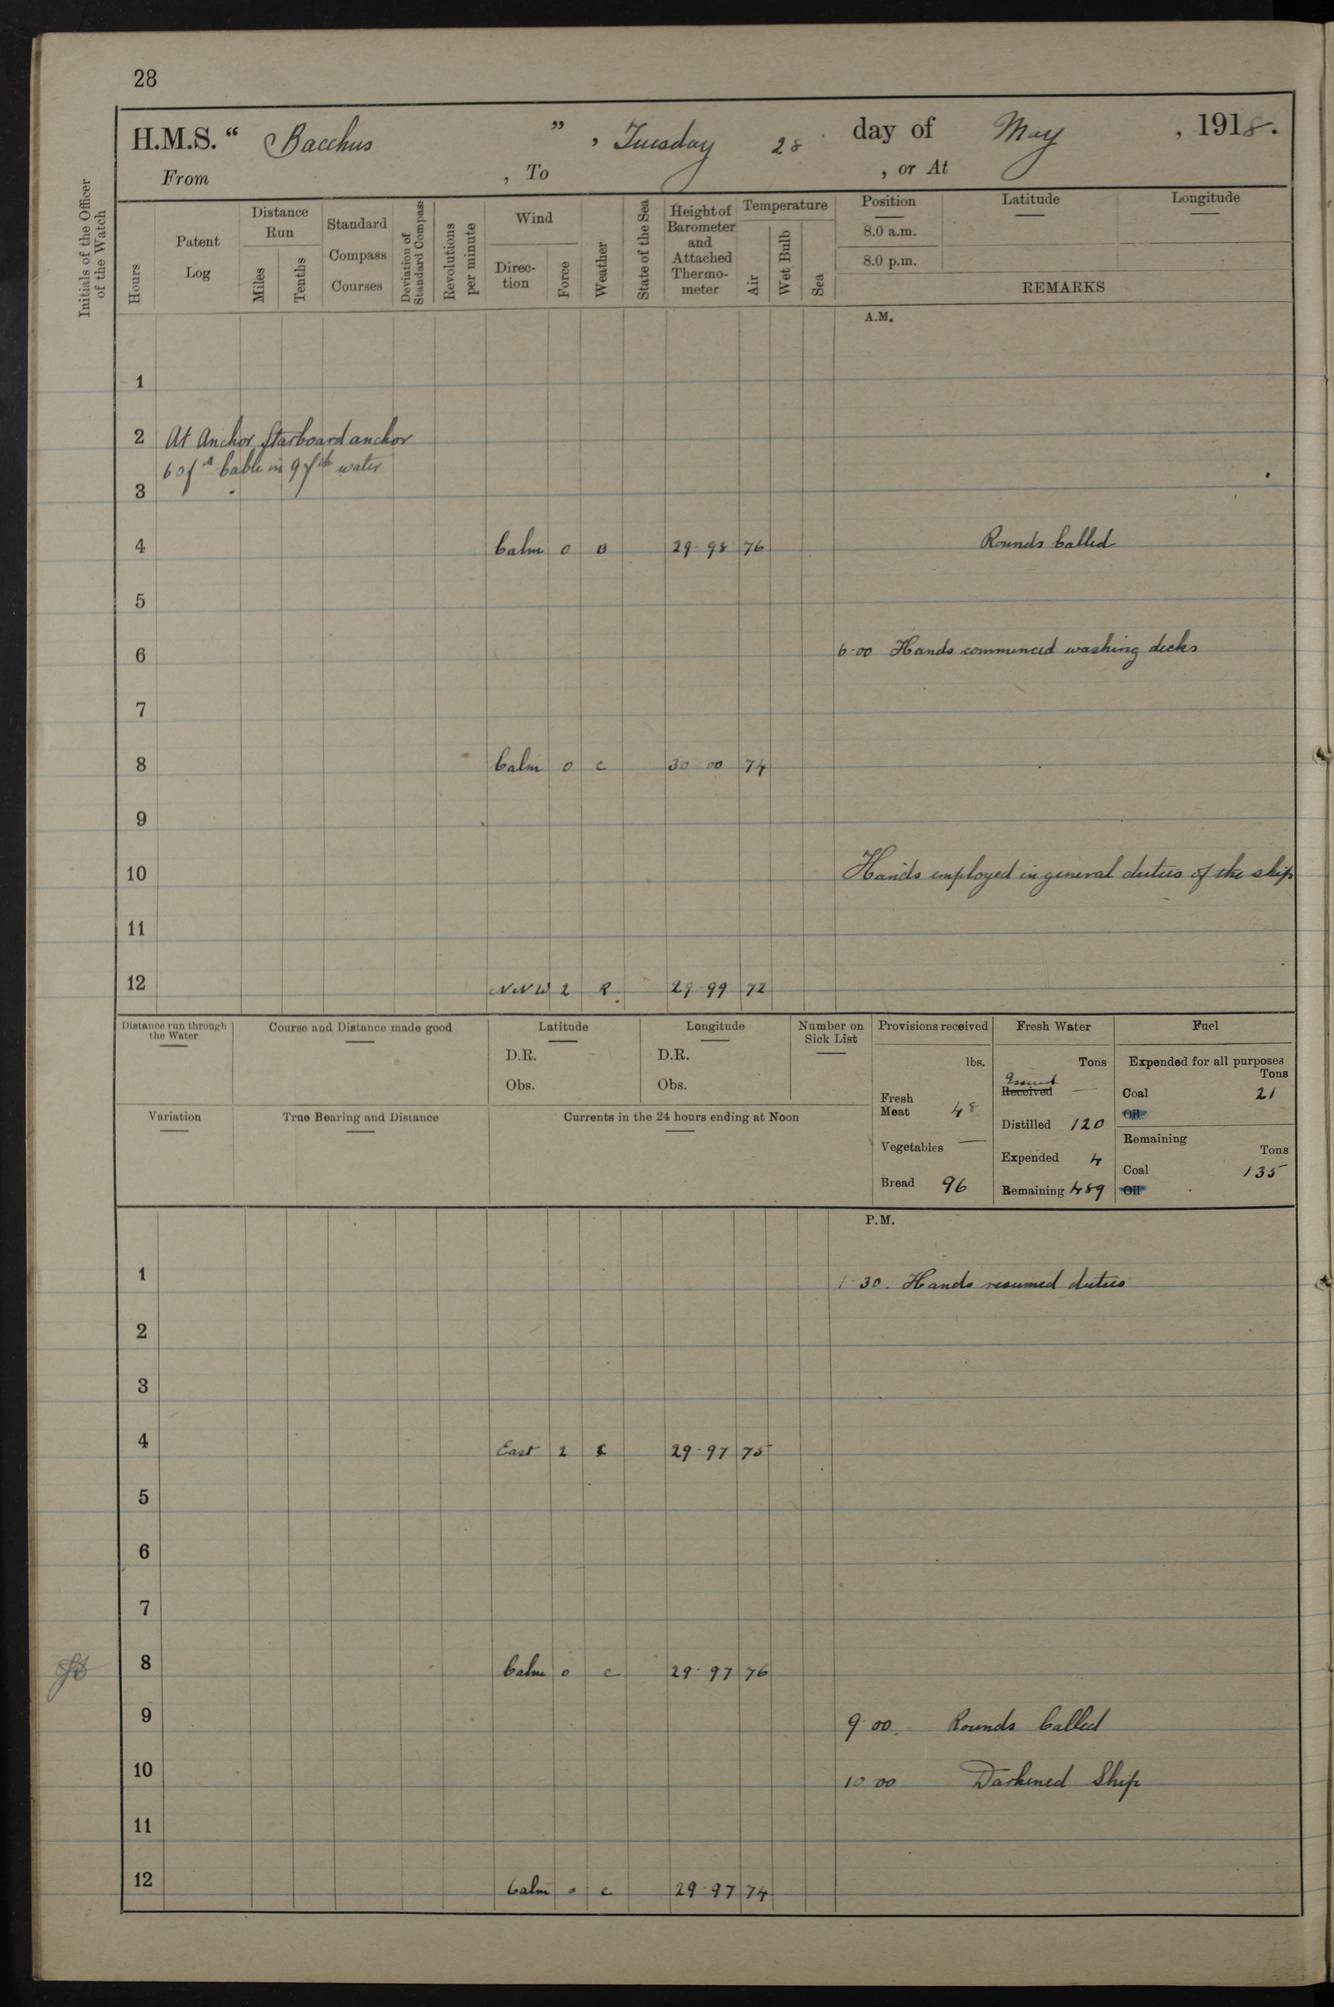 28
H.M.S. “ Bacchus ” , Tuesday 28 day of May , 1918.
From , To , or At
Initials of the Officer of the Watch
Hours
Patent Log
Distance Run
Miles
Tenths
Standard Compass Courses
Deviation of Standard Compass
Revolutions per minute
Wind
Direction
Force
Weather
State of the Sea
Height of Barometer and Attached Thermometer
Temperature
Air
Wet Bulb
Sea
Position
8.0 a.m.
8.0 p.m.
Latitude
Longitude
REMARKS
A.M.
1
2 At Anchor, Starboard anchor
6 of Cable in 9 fth water
3
4 Calm 0 O 29·98 76 Rounds Called
5
6 6·00 Hands commenced washing decks
7
8 Calm 0 C 30 00 74
9
10 Hands employed in general duties of the ship
11
12 NNW 2 R. 29·99 72
Distance run through the Water
Course and Distance made good
Latitude
D.R.
Obs.
Longitude
D.R.
Obs.
Number on Sick List
Provisions received
lbs.
Fresh Meat 48
Vegetables —
Bread 96
Fresh Water
Tons
Received —
Distilled 120
Expended 4
Remaining 489
Fuel
Expended for all purposes
Tons
Coal 21
Oil
Remaining
Tons
Coal 135
Oil
Variation
True Bearing and Distance
Currents in the 24 hours ending at Noon
P.M.
1 1·30. Hands resumed duties
2
3
4 East 2 29·97 75
5
6
7
8 Calm 0 C 29·97 76
9 9·00. Rounds Called
10 10 00 Darkened Ship
11
12 Calm 0 C 29·97 74